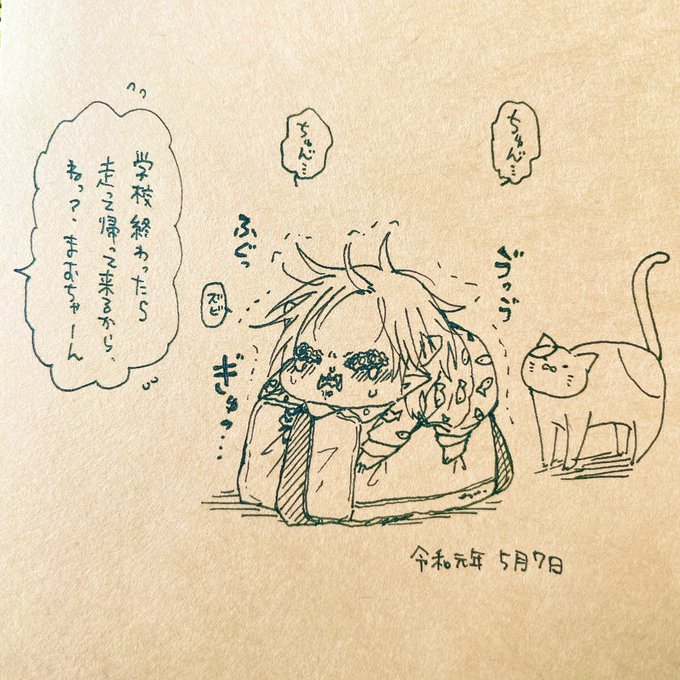 ちゅん…
ちゅん…
学校終わったら
走って帰って来るから、
ねっ?、まむちゃーん
ふぐっ
ズビ
ぎゅっ…
ゔっゔぅ
令和元年 5月7日